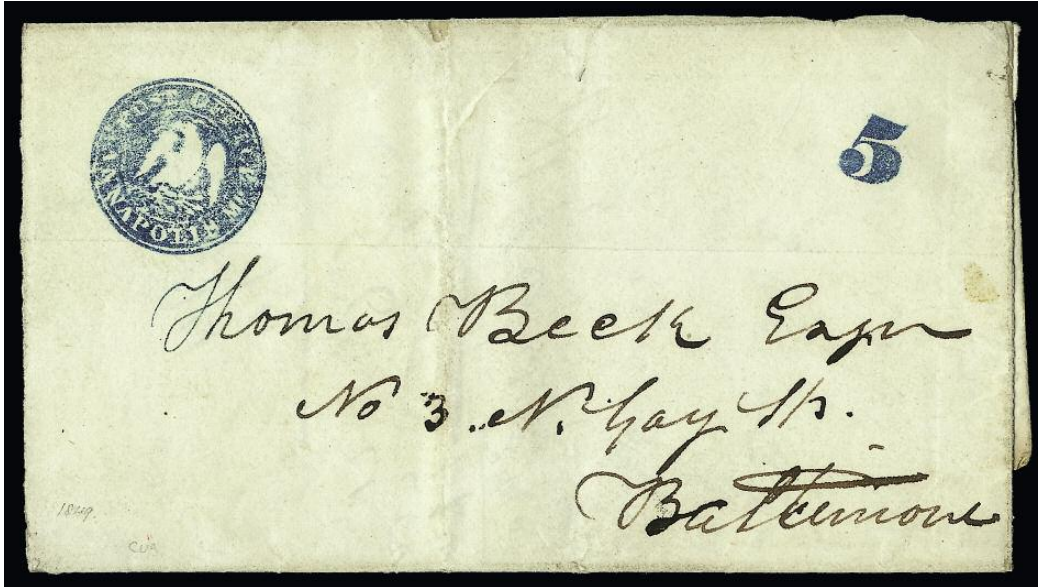 POST OFFICE
ANNAPOLIS Md.
5
Thomas Beck Esqr
No 3. N. Gay St.
Baltimore
1849.